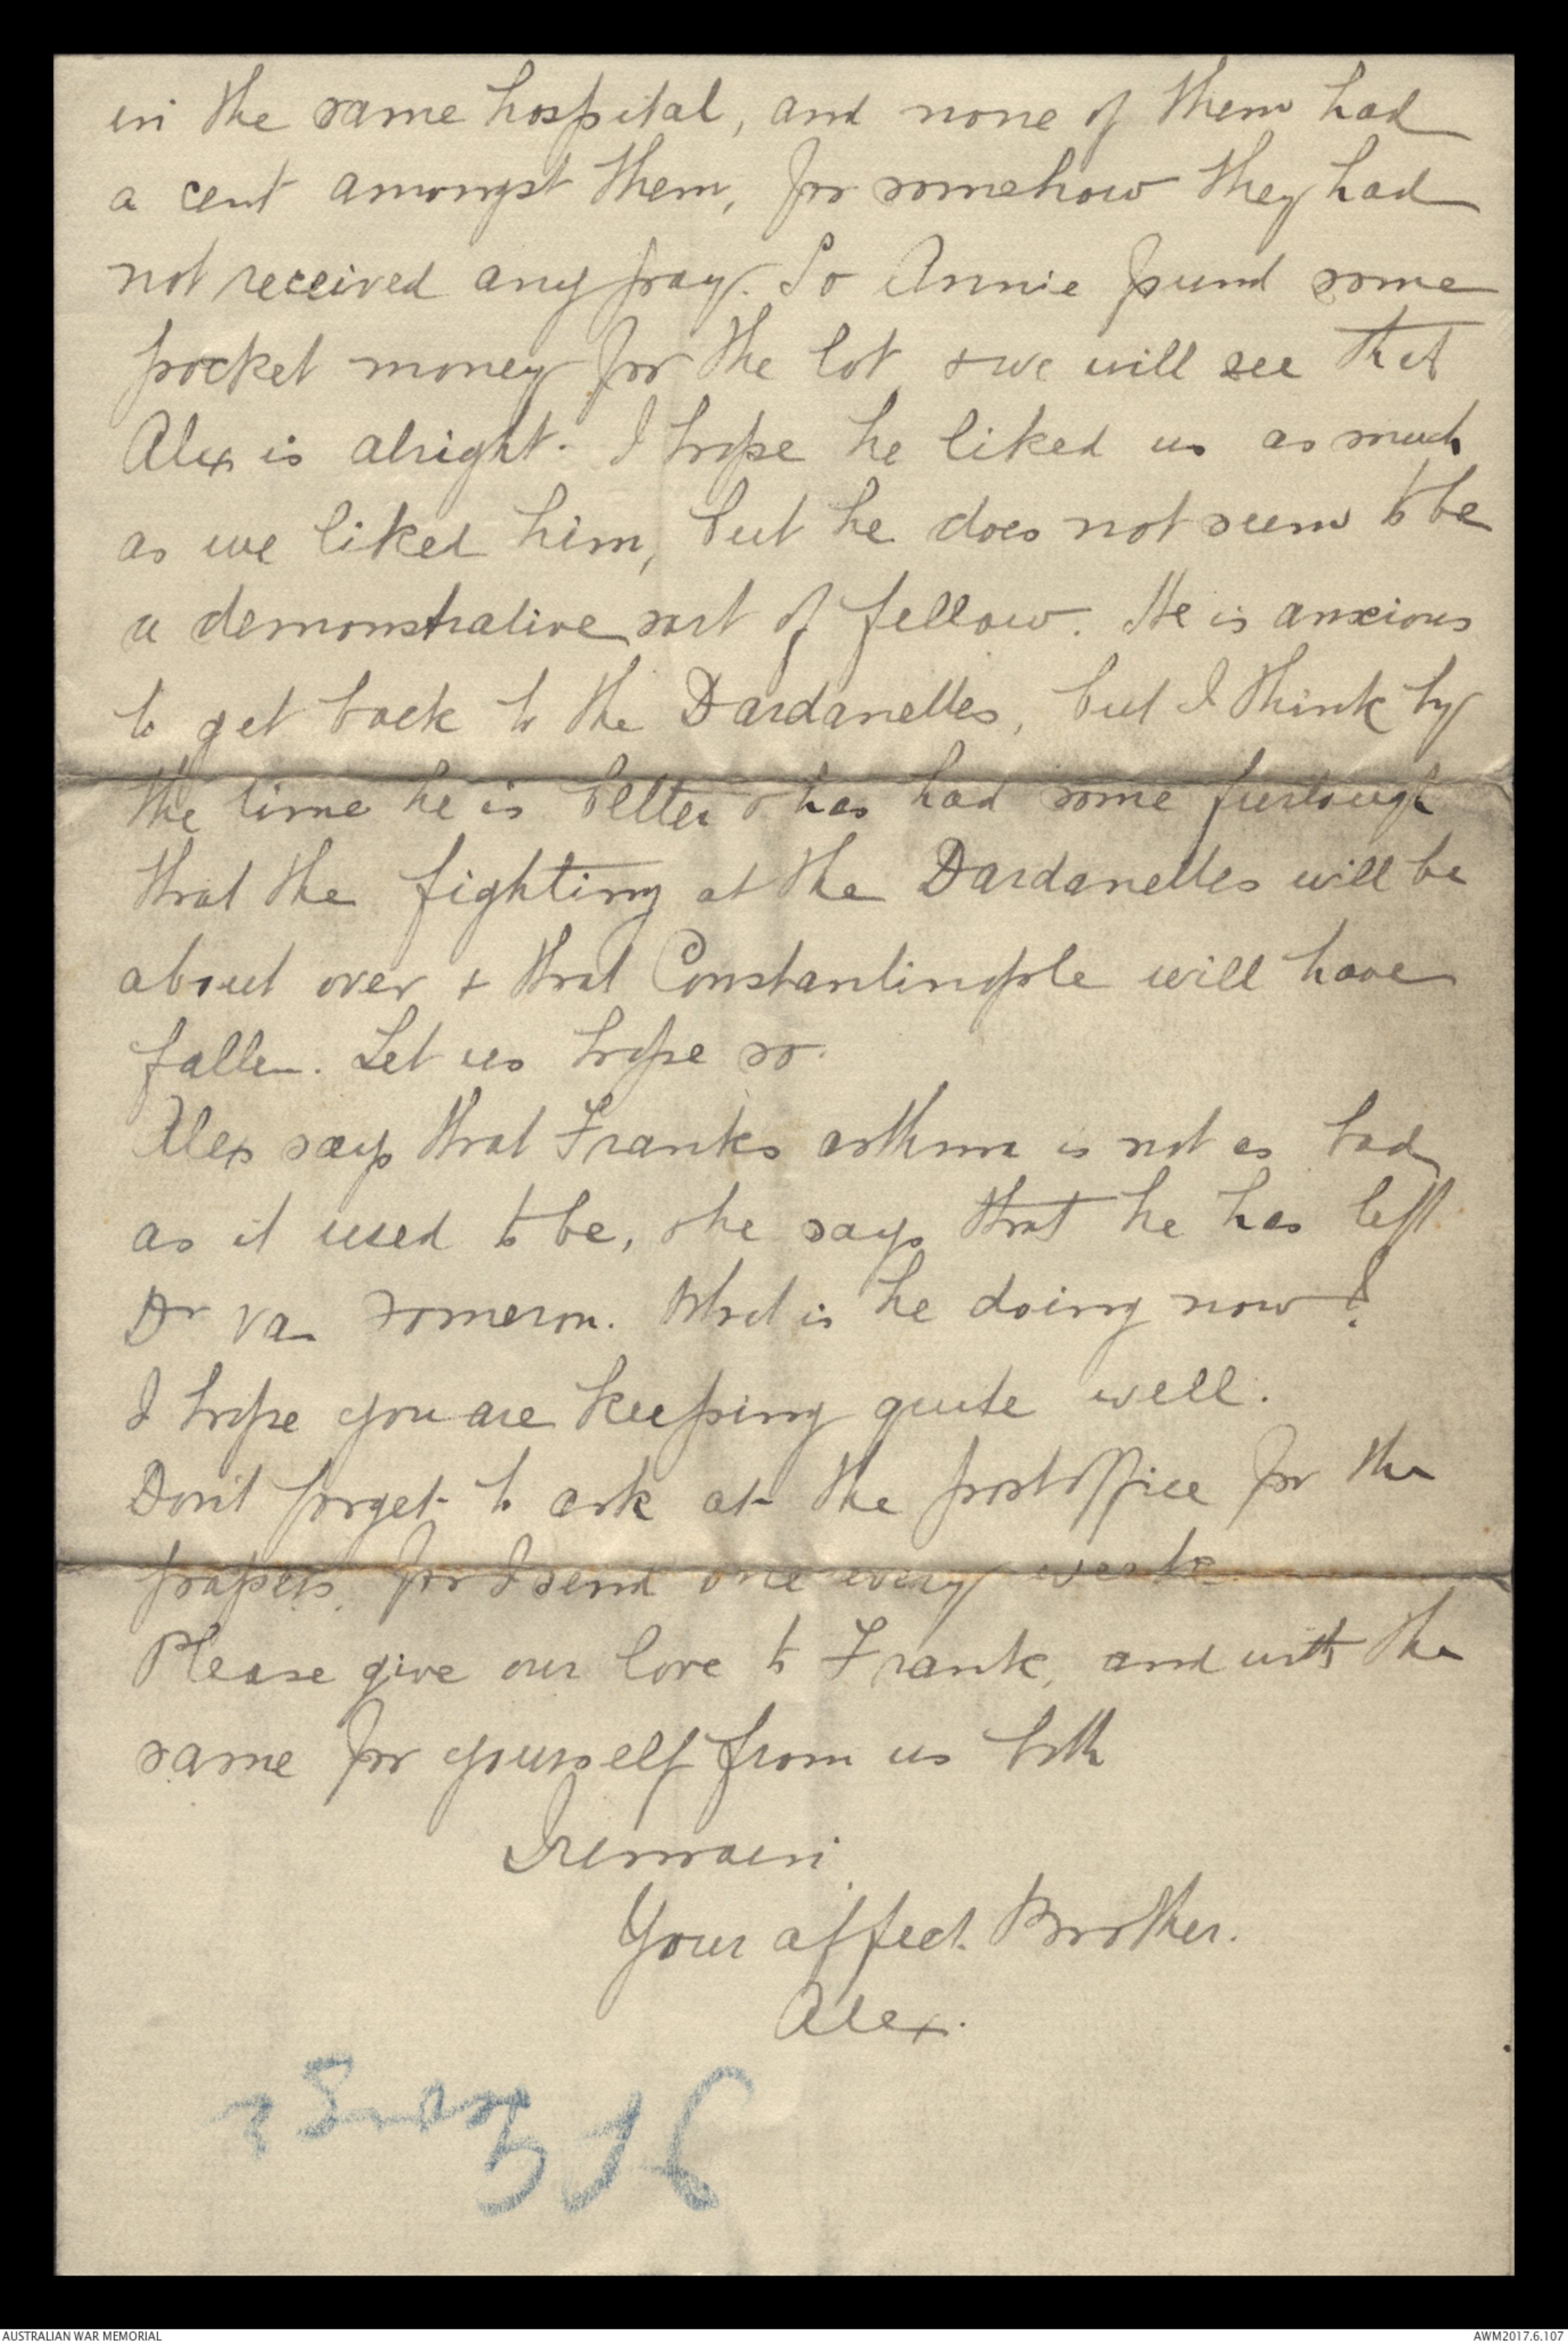 in the same hospital, and none of them had
a cent amongst them, for somehow they had
not received any pay. So Annie found some
pocket money for the lot, & we will see that
Alex is alright. I hope he liked us as much
as we liked him, but he does not seem to be
a demonstrative sort of fellow. He is anxious
to get back to the Dardanelles, but I think by
the time he is better & has had some furlough
that the fighting at the Dardanelles will be
about over & that Constantinople will have
fallen. Let us hope so.
Alex says that Franks asthma is not as bad
as it used to be, & he says that he has left
Dr Van Someron. What is he doing now?
I hope you are keeping quite well.
Don't forget to ask at the post office for the
papers, for I send one every week.
Please give our love to Frank, and with the
same for yourself from us both
I remain
Your affect. Brother.
Alex.
AUSTRALIAN WAR MEMORIAL
AWM2017.6.107